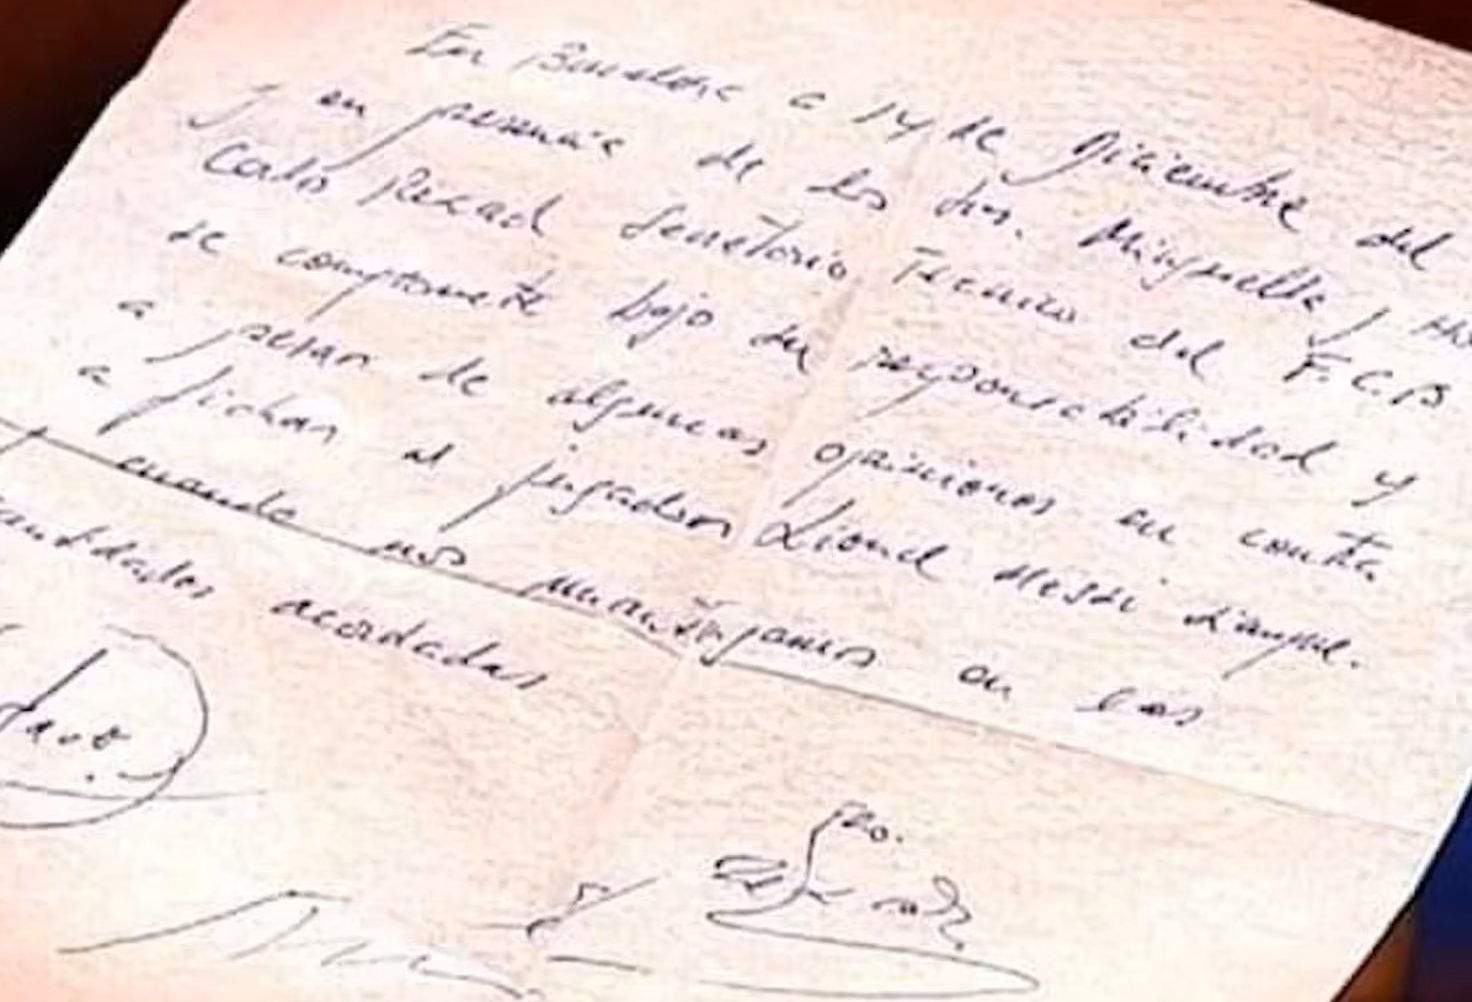 En Barcelona a 14 de Diciembre del
y en presencia de los Srs. Minguella y
Carlos Rexach Secretario Tecnico del F.C.B
se compromete bajo su responsabilidad y
a pesar de algunas opiniones en contra
a fichar al jugador Lionel Messi siempre.
y cuando nos mantengamos en las
cantidades acordadas
Fdo.